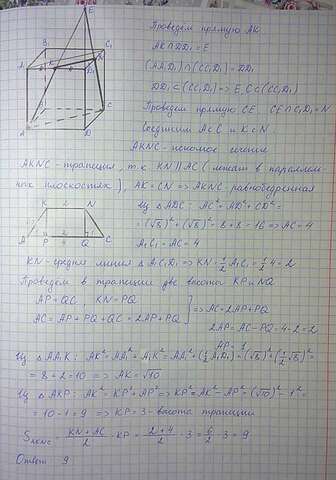 E
B₁
C₁
A₁
K
N
D₁
A
D
C
Проведем прямую AK
AK ∩ DD₁ = E
(AA₁D₁) ∩ (CC₁D₁) = DD₁
DD₁ ⊂ (CC₁D₁) => E, C ⊂ (CC₁D₁)
Проведем прямую CE CE ∩ C₁D₁ = N
Соединим A с C и K с N
AKNC - искомое сечение
AKNC - трапеция, т.к. KN || AC (лежат в параллель-
ных плоскостях), AK = CN => AKNC равнобедренная
K 2 N
A P 4 Q C
Из △ADC: AC² = AD² + CD² =
= (√8)² + (√8)² = 8 + 8 = 16 => AC = 4
A₁C₁ = AC = 4
KN - средняя линия △A₁C₁D₁ => KN = 1/2 A₁C₁ = 1/2 · 4 = 2
Проведем в трапеции две высоты KP и NQ
AP = QC, KN = PQ
AC = AP + PQ + QC = 2AP + PQ
=> AC = 2AP + PQ
2AP = AC - PQ = 4 - 2 = 2
AP = 1
Из △AA₁K: AK² = AA₁² + A₁K² = AA₁² + (1/2 A₁D₁)² = (√8)² + (1/2 √8)² =
= 8 + 2 = 10 => AK = √10
Из △AKP: AK² = KP² + AP² => KP² = AK² - AP² = (√10)² - 1² =
= 10 - 1 = 9 => KP = 3 - высота трапеции
S AKNC = (KN + AC)/2 · KP = (2 + 4)/2 · 3 = 6/2 · 3 = 9
Ответ: 9